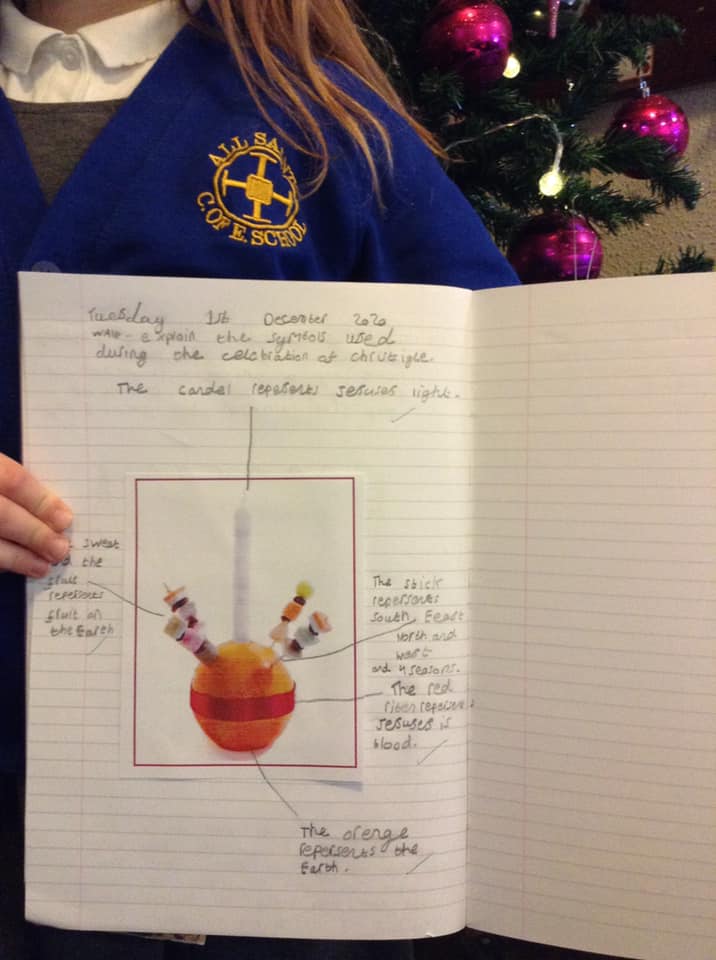 ALL SA
C. OF E. SCHOOL
Tuesday 1st December 2020
WALT - explain the symbols used
during the celbration of christigle.
The candel repersents Jesuses light.
sweet
the
repersents
fruit on
the Earth
The stick
repersents
south, Eeast
North and
west
and 4 seasons.
The red
riben repersents
Jesuses is
blood.
The orenge
repersents the
Earth.